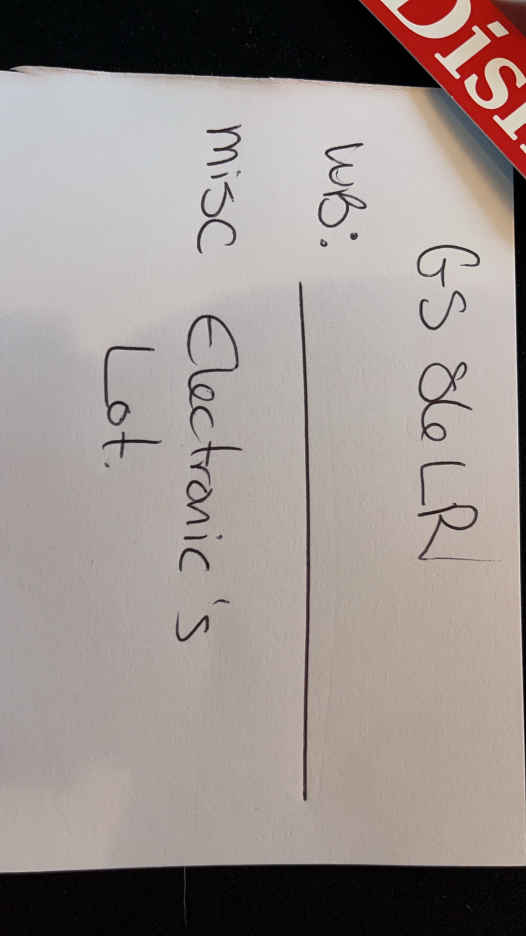 Dis
GS 86 LR
WB:
Misc Electronic's
Lot.